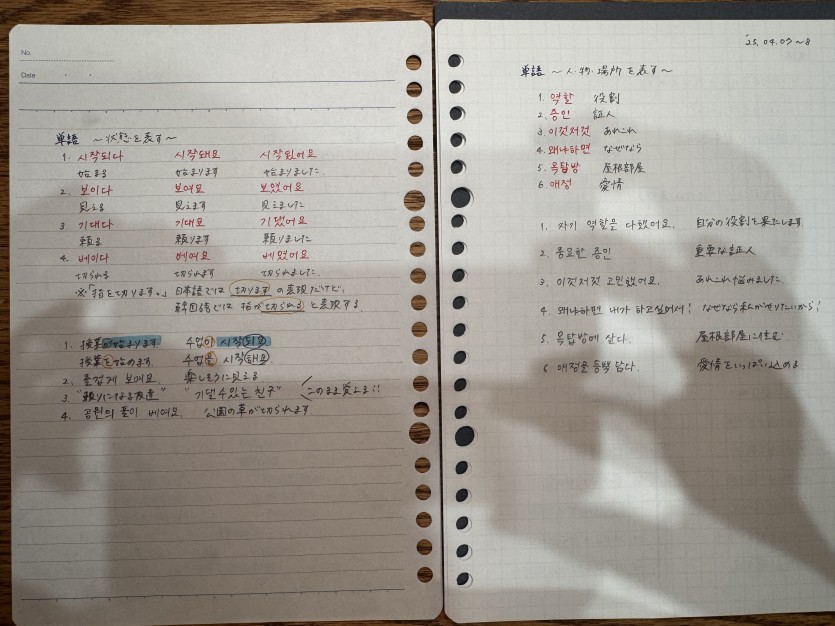 No.
Date
単語 ～状態を表す～
1. 시작되다 시작돼요 시작되었어요
始まる 始まります 始まりました
2. 보이다 보여요 보였어요
見える 見えます 見えました
3. 기대다 기대요 기댔어요
頼る 頼ります 頼りました
4. 베이다 베여요 베였어요
切られる 切られます 切られました
※「指を切ります。」日本語では 切ります の表現だけど、
韓国語では 指が切られる と表現する
1. 授業が始まります 수업이 시작돼요
授業を始めます 수업을 시작해요
2. 즐겁게 보여요 楽しそうに見える
3. "頼りになる友達" "기댈 수 있는 친구" このまま覚える!!
4. 공원의 풀이 베여요 公園の草が切られます
'25.04.07～8
単語 ～人・物・場所を表す～
1. 역할 役割
2. 증인 証人
3. 이것저것 あれこれ
4. 왜냐하면 なぜなら
5. 옥탑방 屋根部屋
6. 애정 愛情
1. 자기 역할은 다했어요. 自分の役割を果たします
2. 중요한 증인 重要な証人
3. 이것저것 고민했어요. あれこれ悩みました
4. 왜냐하면 내가 하고싶어서! なぜなら私がやりたいから!
5. 옥탑방에 살다. 屋根部屋に住む
6 애정을 듬뿍 담다. 愛情をいっぱい込める